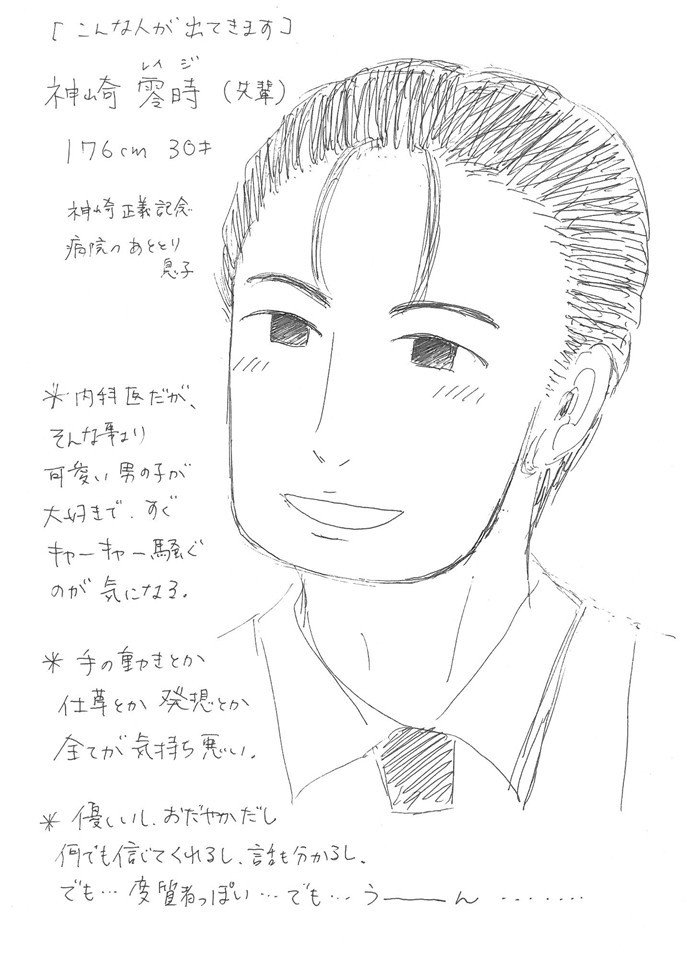 [こんな人が出てきます]
レイジ
神崎 零時 (先輩)
176cm 30才
神崎正義記念
病院のあととり
息子
*内科医だが、
そんな事より
可愛い男の子が
大好きで、すぐ
キャーキャー騒ぐ
のが気になる。
*手の動きとか
仕草とか発想とか
全てが気持ち悪い。
*優しいし、おだやかだし
何でも信じてくれるし、話も分かるし。
でも…変質者っぽい…でも…う――ん ........